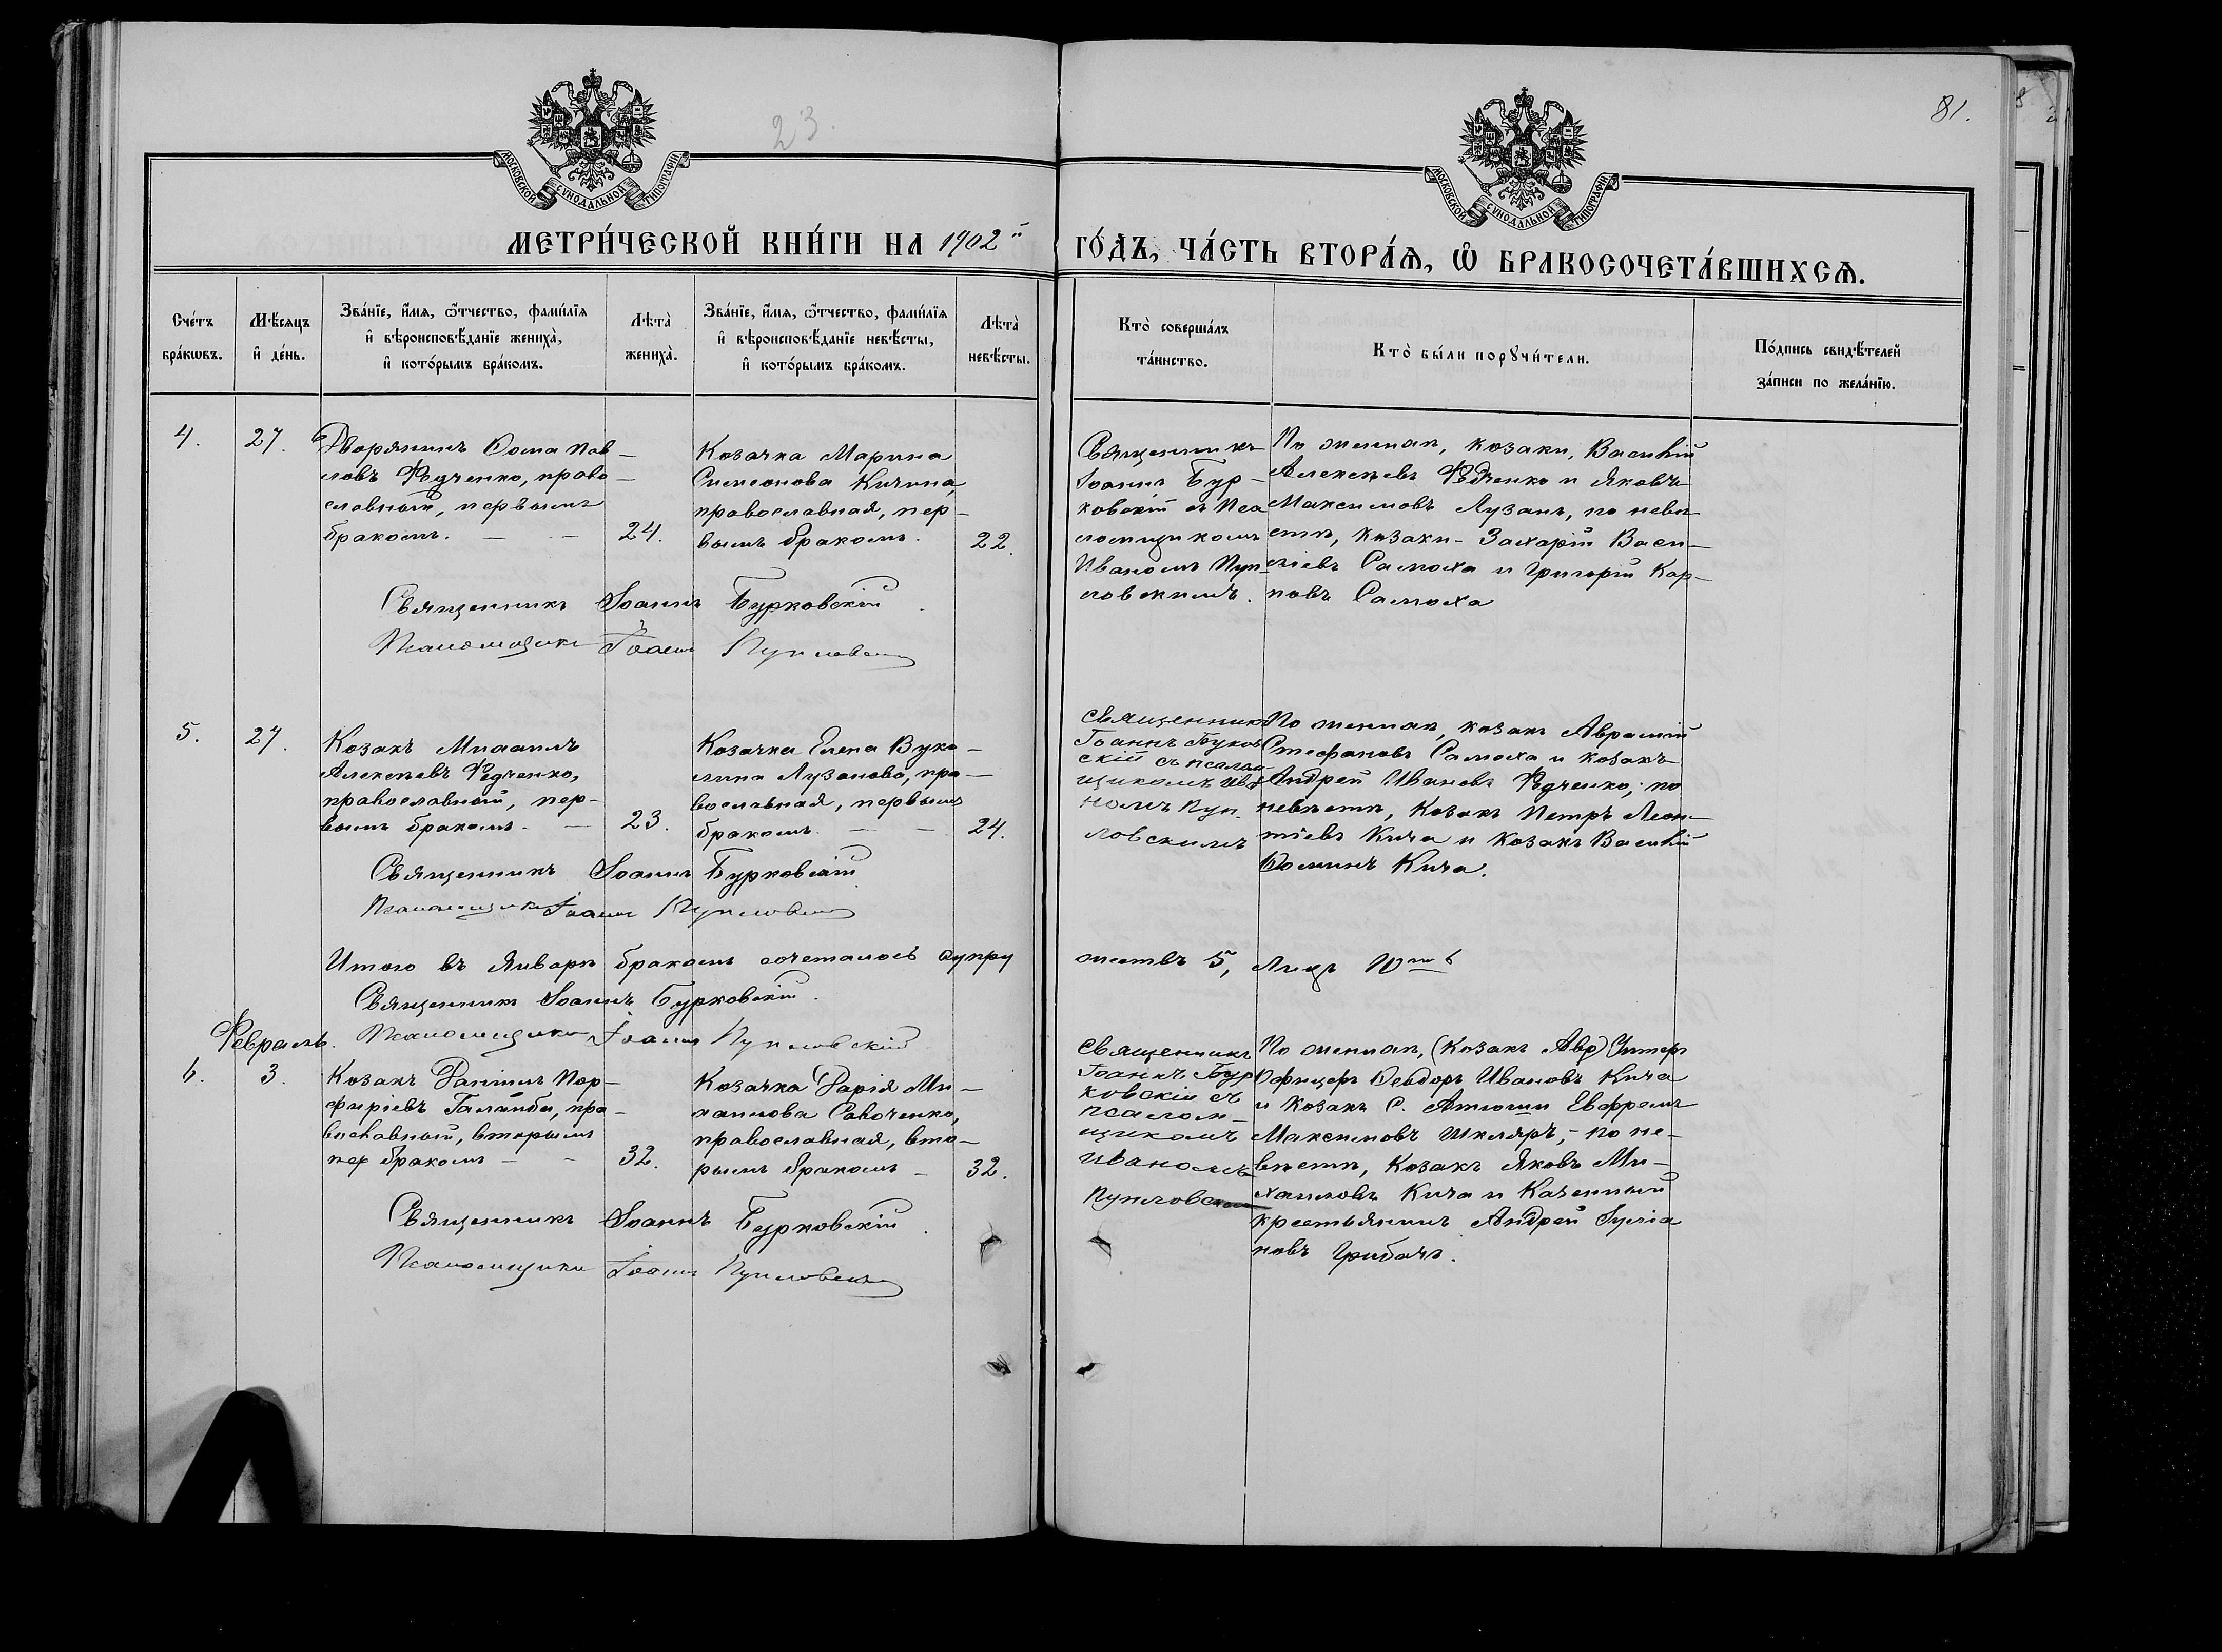 23.
81.
МОСКОВСКОЙ СѴНОДАЛЬНОЙ ТИПОГРАФІИ
МОСКОВСКОЙ СѴНОДАЛЬНОЙ ТИПОГРАФІИ
МЕТРИ́ЧЕСКОЙ КНИ́ГИ НА 1902й ГО́ДЪ, ЧА́СТЬ ВТОРА́Ѧ, Ѡ҆ БРАКОСОЧЕТА́ВШИХСѦ.
Сче́тъ
бра́кѡвъ.
Мѣ́сяцъ
и҆ де́нь.
Зва́нїе, и҆́мя, ѻ҆́тчество, фами́лїя
и҆ вѣроисповѣ́данїе жениха̀,
и҆ кото́рымъ бра́комъ.
Лѣта̀
жениха̀.
Зва́нїе, и҆́мя, ѻ҆́тчество, фами́лїя
и҆ вѣроисповѣ́данїе невѣ́сты,
и҆ кото́рымъ бра́комъ.
Лѣта̀
невѣ́сты.
Кто̀ соверша́лъ
та́инство.
Кто̀ бы́ли порꙋчи́тели.
По́дпись свидѣ́телей
за́писи по жела́нїю.
4.
27.
Дворянинъ Ѳома Пав-
ловъ Федченко, право-
славный, первымъ
бракомъ. — —
24.
Козачка Марина
Симеонова Кичина,
православная, пер-
вымъ бракомъ.
22.
Священникъ
Іоаннъ Бур-
ковскій съ Пса
ломщикомъ
Иваномъ Пуп-
ловскимъ.
По женихѣ, козаки, Василій
Алексѣевъ Федченко и Яковъ
Максимовъ Лузанъ, по невѣ
стѣ, козаки - Захарій Васи-
ліевъ Самоха и Григорій Кар-
повъ Самоха
Священникъ Іоаннъ Бурковскій.
Псаломщикъ Іоаннъ Пупловскій
5.
27.
Козакъ Михаилъ
Алексѣевъ Федченко,
православный, пер-
вымъ бракомъ. —
23.
Козачка Елена Вуко-
лина Лузанова, пра-
вославная, первымъ
бракомъ. — —
24.
Священникъ
Іоаннъ Бурков
скій съ псалом-
щикомъ Ива
номъ Пуп-
ловскимъ
По женихѣ, козакъ Аврамій
Стефановъ Самоха и козакъ
Андрей Ивановъ Федченко; по
невѣстѣ, Козакъ Петръ Леон-
тіевъ Кича и козакъ Василій
Ѳоминъ Кича.
Священникъ Іоаннъ Бурковскій
Псаломщикъ Іоаннъ Пупловскій
Итого въ Январѣ бракомъ сочеталось супру
жествъ 5, Лицъ 10ть
Священникъ Іоаннъ Бурковскій.
Псаломщикъ Іоаннъ Пупловскій
Февраль.
6.
3.
Козакъ Даніилъ Пор-
фиріевъ Галамба, пра-
вославный, вторымъ
бракомъ — —
32.
Козачка Дарія Ми-
хаилова Савоченко,
православная, вто-
рымъ бракомъ —
32.
Священникъ
Іоаннъ Бур
ковскій съ
псалом-
щикомъ
Иваномъ
Пупловскимъ
По женихѣ, (Козакъ Авр) Унтеръ
Офицеръ Ѳеодоръ Ивановъ Кича
и Козакъ С. Евфремъ
Максимовъ Шкляръ, - по не-
вѣстѣ, Козакъ Яковъ Ми-
хаиловъ Кича и Казенный
крестьянинъ Андрей Іуліа
новъ Грибачъ.
Священникъ Іоаннъ Бурковскій.
Псаломщикъ Іоаннъ Пупловскій